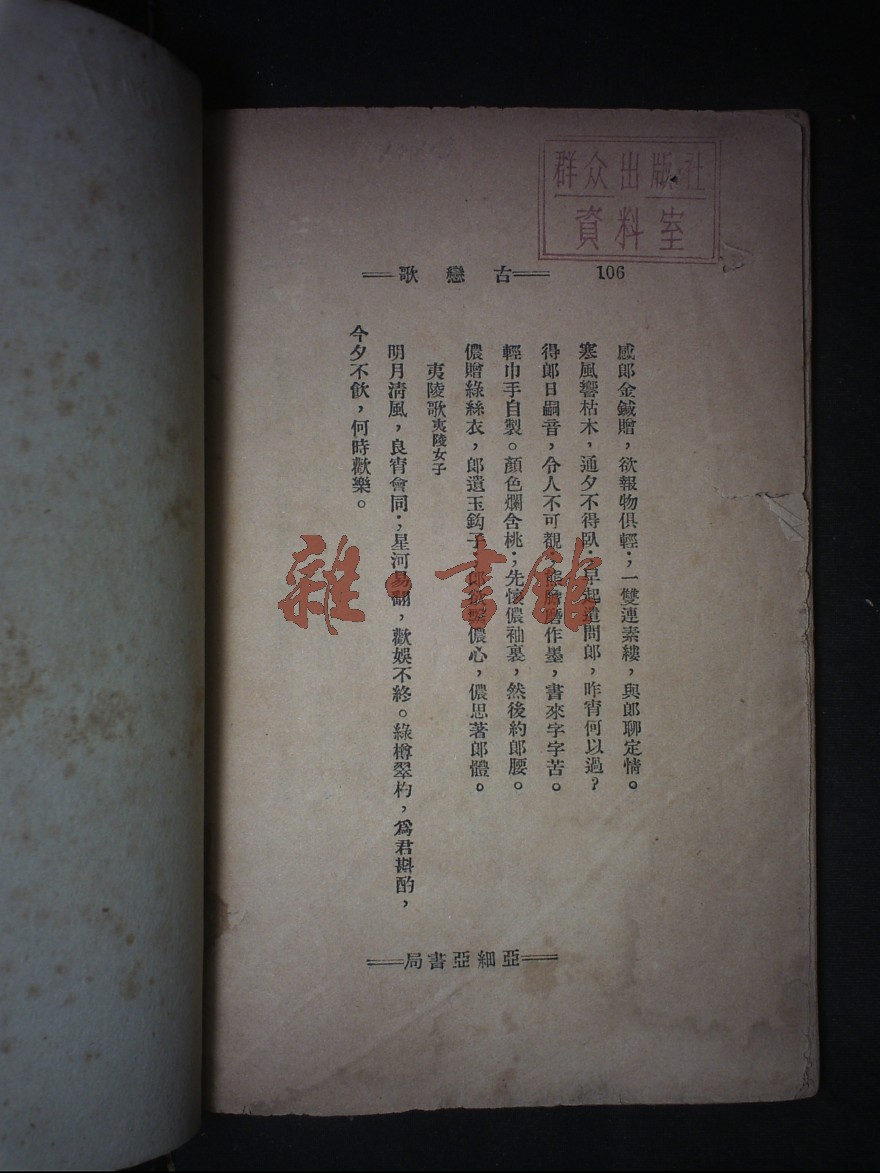 群众出版社
資料室
古戀歌
106
感郎金鍼贈，欲報物俱輕；一雙連素縷，與郎聊定情。
寒風響枯木，通夕不得臥；早起遣問郎，昨宵何以過？
得郎日嗣音，令人不可覩；熊膽磨作墨，書來字字苦。
輕巾手自製。顏色爛含桃；先懷儂袖裏，然後約郎腰。
儂贈綠絲衣，郎遺玉鈎子；郎欲儂心，儂思著郎體。
夷陵歌 夷陵女子
明月清風，良宵會同；星河易翻，歡娛不終。綠樽翠杓，爲君斟酌，
今夕不飲，何時歡樂。
亞細亞書局
雜·書館